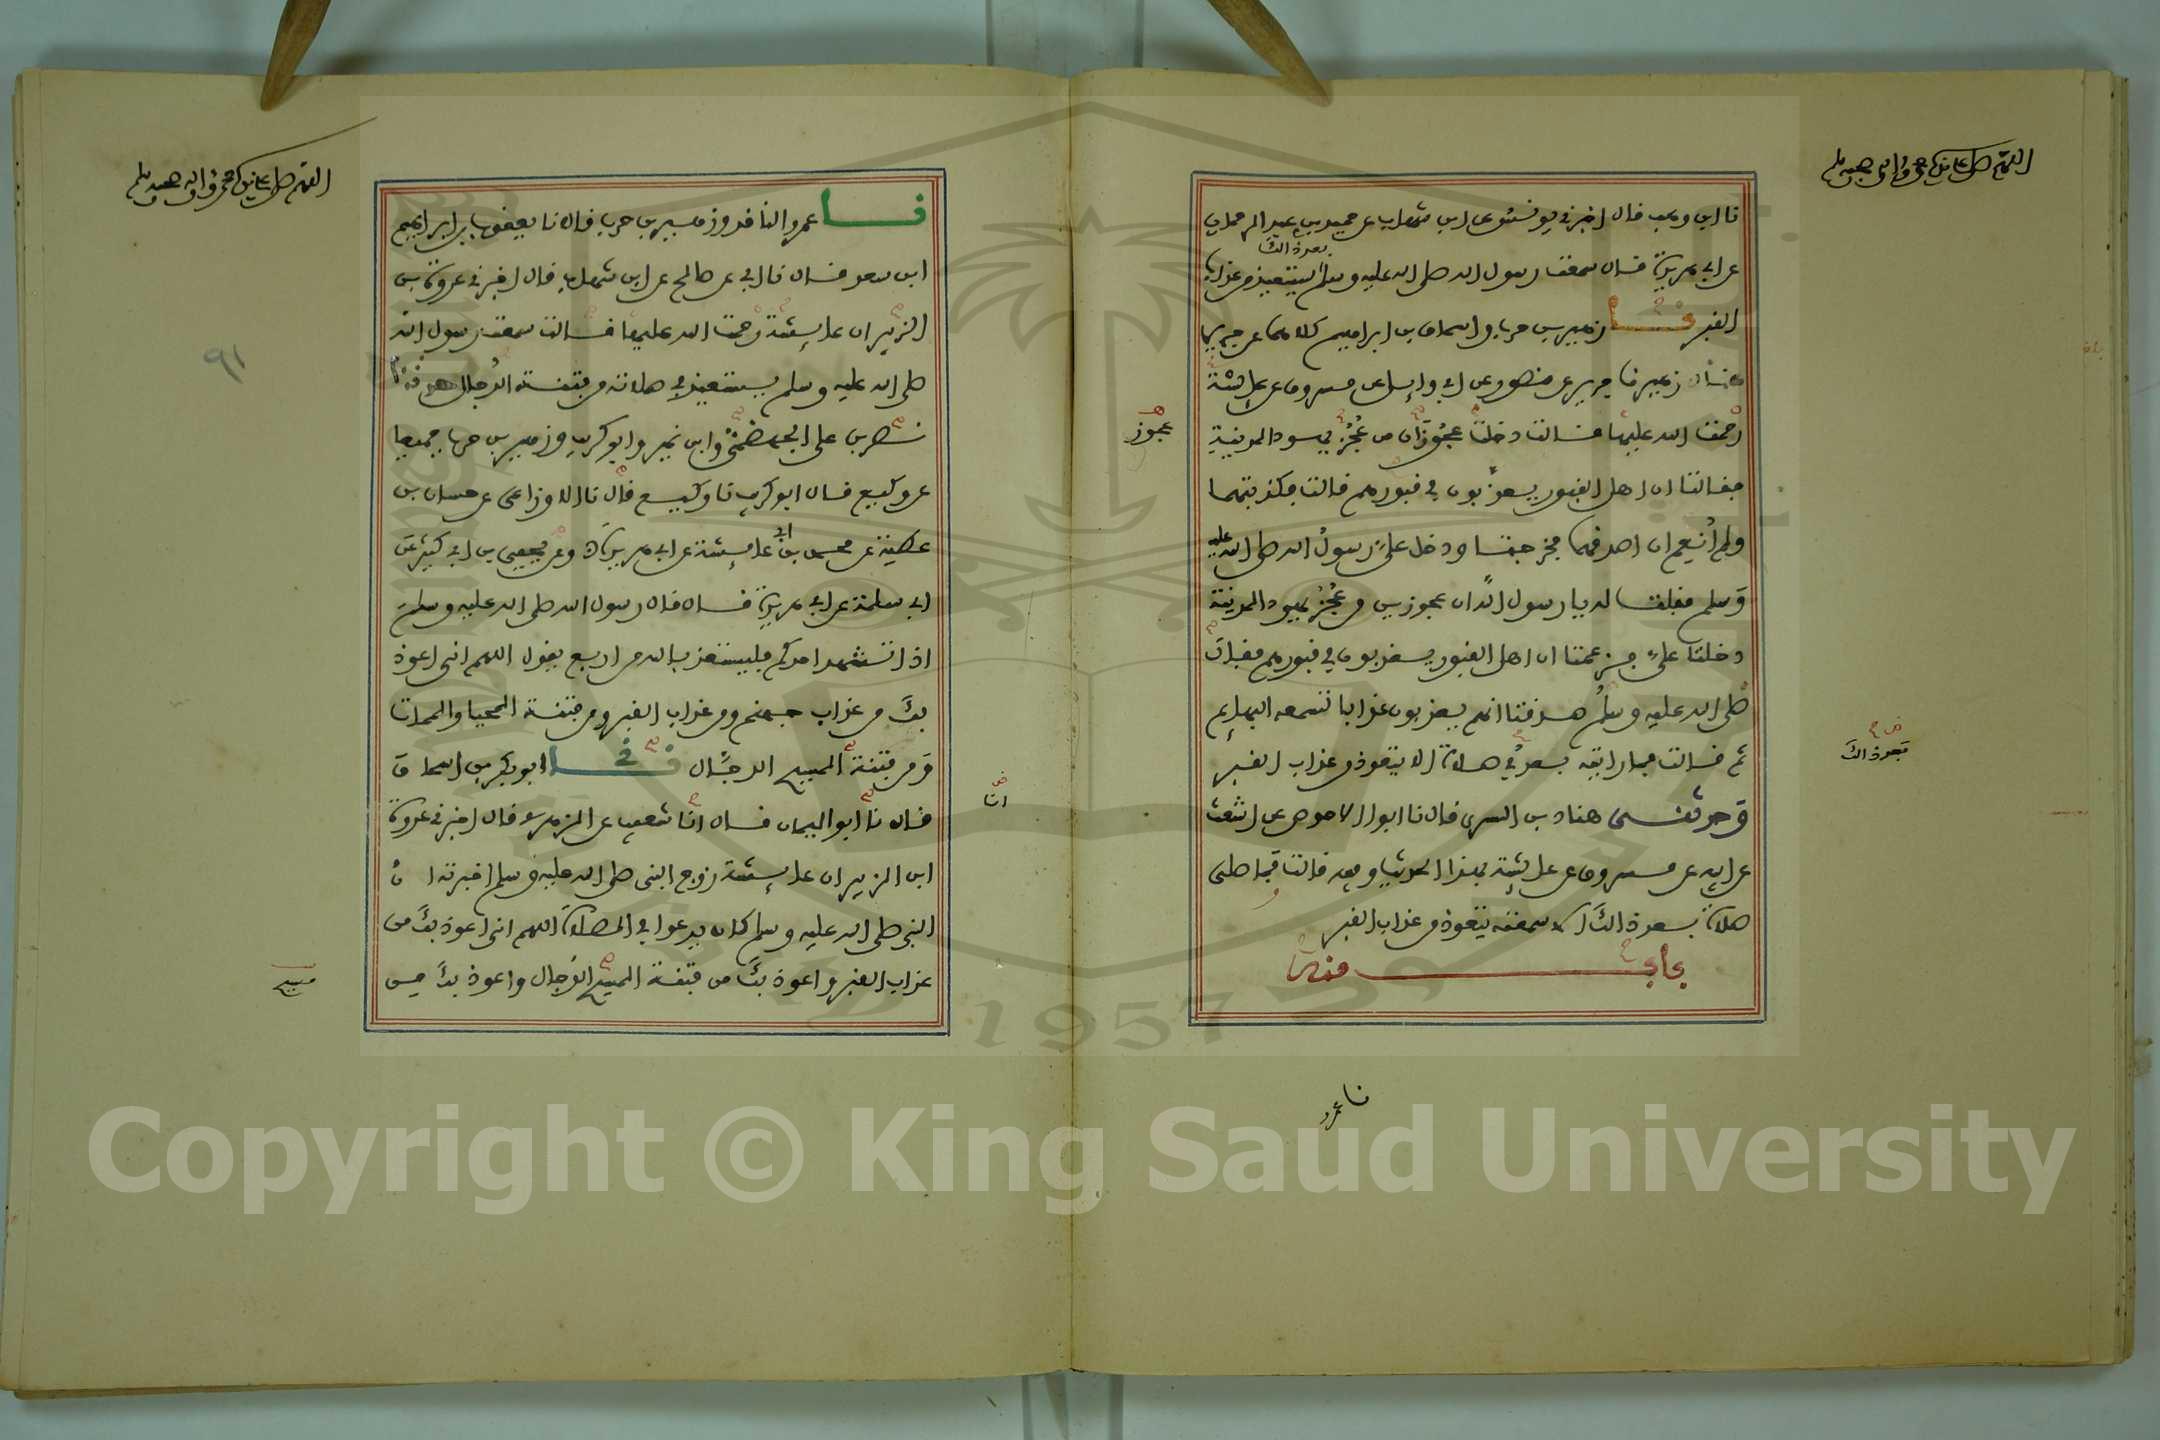 اللهم صل على سيدنا محمد واله وصحبه وسلم
نا ابن وهب قال اخبرني يونس عن ابن شهاب عن حميد بن عبد الرحمان
بعد ذالك
عن ابي هريرة قال سمعت رسول الله صلى الله عليه وسلم يستعيذ من عذاب
القبر نا زهير بن حرب واسحاق بن ابراهيم كلاهما عن جرير
قال زهير نا جرير عن منصور عن ابي وائل عن مسروق عن عائشة
رحمت الله عليها قالت دخلت عجوزان من عجز يهود المدينة
عجوز
فقالتا ان اهل القبور يعذبون في قبورهم قالت فكذبتهما
ولم انعم ان اصدقهما فخرجتا ودخل علي رسول الله صلى الله عليه
وسلم فقلت له يا رسول الله ان عجوزين من عجز يهود المدينة
دخلتا علي فزعمتا ان اهل القبور يعذبون في قبورهم فقال
صلى الله عليه وسلم صدقتا انهم يعذبون عذابا تسمعه البهائم
ثم قالت فما رايته بعد في صلاة الا يتعوذ من عذاب القبر
بعد ذالك
وحدثني هناد بن السري قال نا ابو الاحوص عن اشعث
عن ابيه عن مسروق عن عائشة بهذا الحديث وفيه قالت فما صلى
صلاة بعد ذالك الا سمعته يتعوذ من عذاب القبر
باب منه
نا عمرو
اللهم صل على سيدنا محمد واله وصحبه وسلم
٩١
نا عمرو الناقد وزهير بن حرب قال نا يعقوب بن ابراهيم
ابن سعد قال نا ابي عن صالح عن ابن شهاب قال اخبرني عروة بن
الزبير ان عائشة رحمت الله عليها قالت سمعت رسول الله
صلى الله عليه وسلم يستعيذ في صلاته من فتنة الدجال
نصر بن علي الجهضمي وابن نمير وابو كريب وزهير بن حرب جميعا
عن وكيع قال ابو كريب نا وكيع قال نا الاوزاعي عن حسان بن
عطية عن محمد بن ابي عائشة عن ابي هريرة وعن يحيى بن ابي كثير عن
ابي سلمة عن ابي هريرة قال قال رسول الله صلى الله عليه وسلم
اذا تشهد احدكم فليستعذ بالله من اربع يقول اللهم اني اعوذ
بك من عذاب جهنم ومن عذاب القبر ومن فتنة المحيا والممات
ومن فتنة المسيح الدجال نا ابو بكر بن اسحاق
قال نا ابو اليمان قال انا شعيب عن الزهري قال اخبرني عروة
انا
ابن الزبير ان عائشة زوج النبي صلى الله عليه وسلم اخبرته ان
النبي صلى الله عليه وسلم كان يدعو في الصلاة اللهم اني اعوذ بك من
عذاب القبر واعوذ بك من فتنة المسيح الدجال واعوذ بك من
مسيح
1957
Copyright © King Saud University